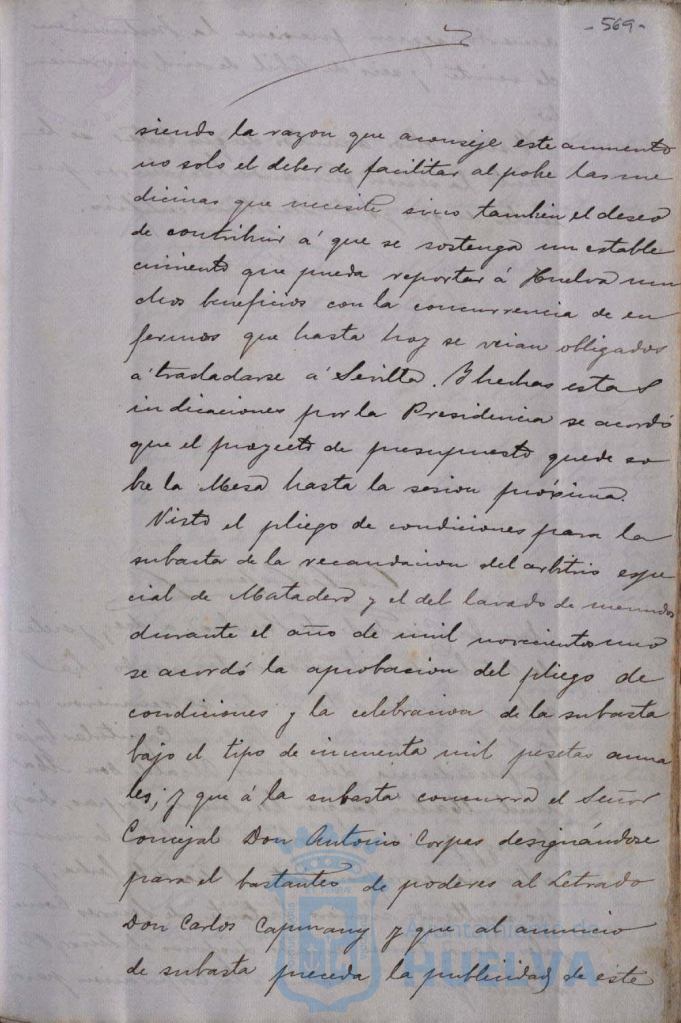 -569-
siendo la razon que aconseje este aumento
no solo el deber de facilitar al pobre las me
dicinas que necesite sino tambien el deseo
de contribuir á que se sostenga un estable
cimiento que pueda reportar á Huelva mu
chos beneficios con la concurrencia de en
fermos que hasta hoy se veian obligados
á trasladarse á Sevilla. Y hechas estas
indicaciones por la Presidencia se acordó
que el proyecto de presupuesto quede so
bre la Mesa hasta la sesion próxima.
Visto el pliego de condiciones para la
subasta de la recaudacion del arbitrio espe
cial de Matadero y el del lavado de menudos
durante el año de mil novecientos uno
se acordó la aprobacion del pliego de
condiciones y la celebracion de la subasta
bajo el tipo de cincuenta mil pesetas anua
les; y que á la subasta concurra el Señor
Concejal Don Antonio Corpas designándose
para el bastanteo de poderes al Letrado
Don Carlos Capmany y que al anuncio
de subasta preceda la publicidad de este
Ayuntamiento de
HUELVA